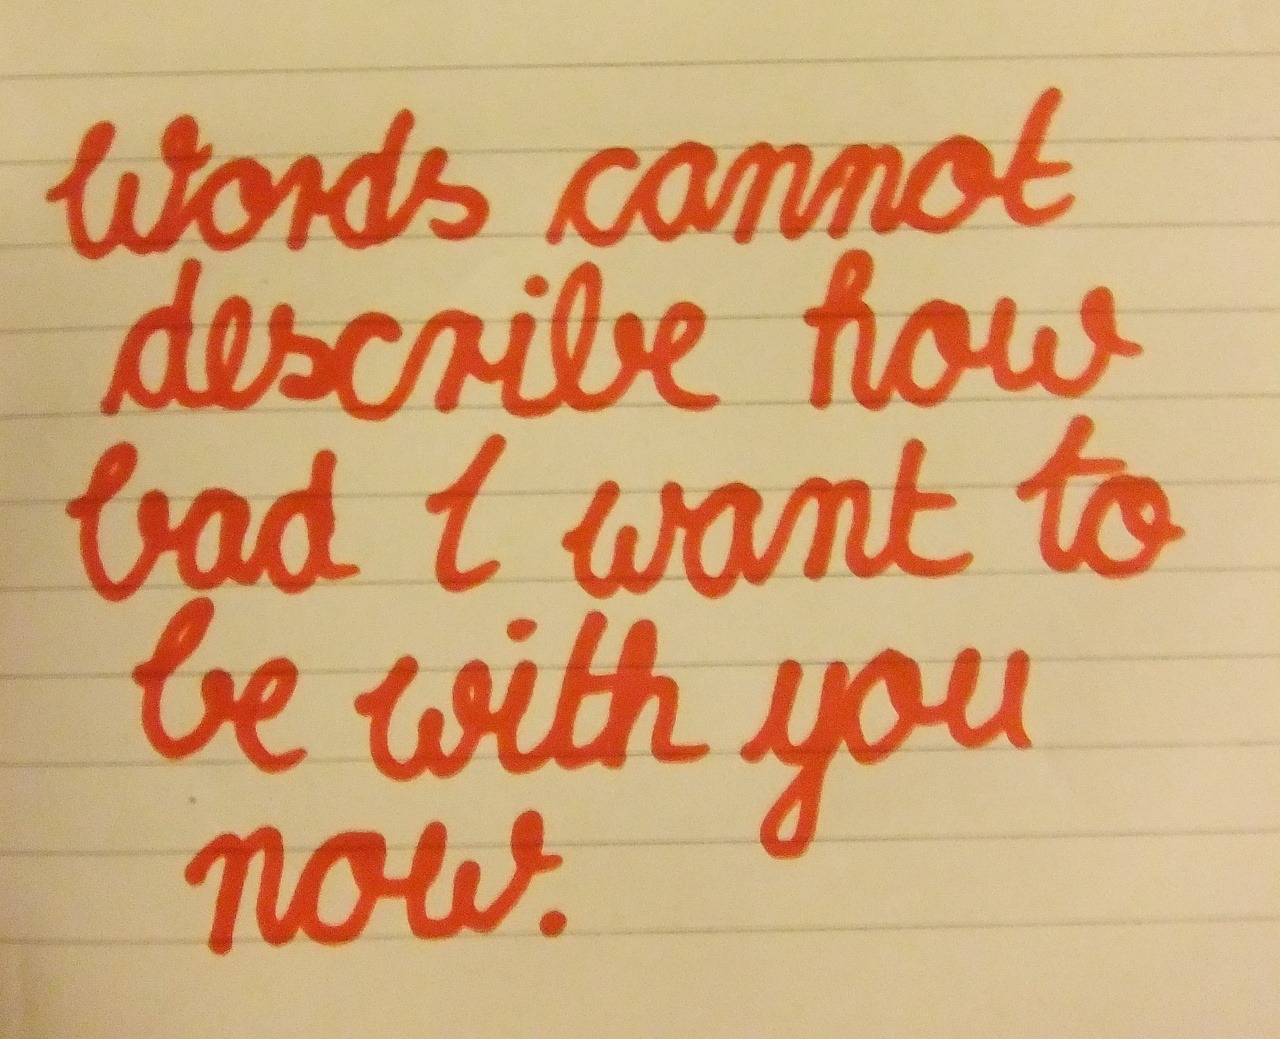 Words cannot
describe how
bad I want to
be with you
now.